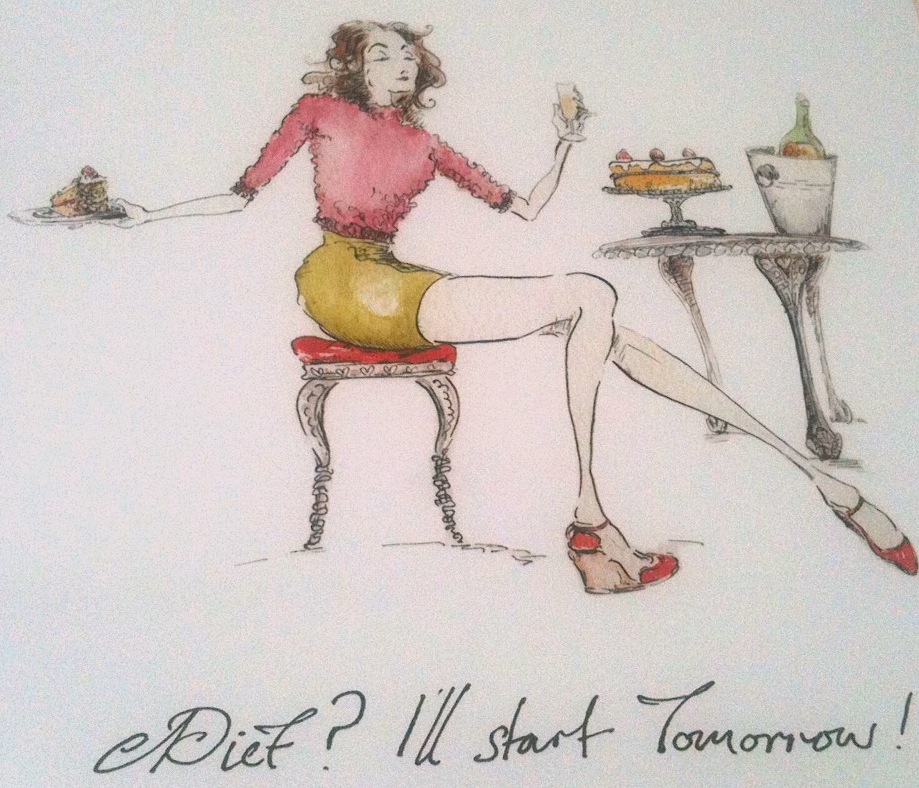 Diet? I'll start Tomorrow!